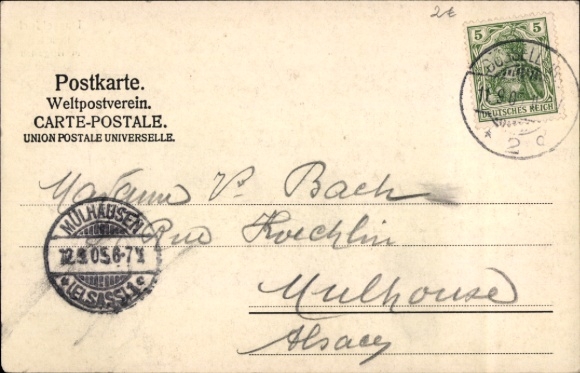 2€
5 5
DEUTSCHES REICH
Postkarte.
Weltpostverein.
CARTE-POSTALE.
UNION POSTALE UNIVERSELLE.
2 c
Madame V. Bach
Rue Koechlin
Mulhouse
Alsace
MÜLHAUSEN
12.9.05.6-7
(ELSASS) 1